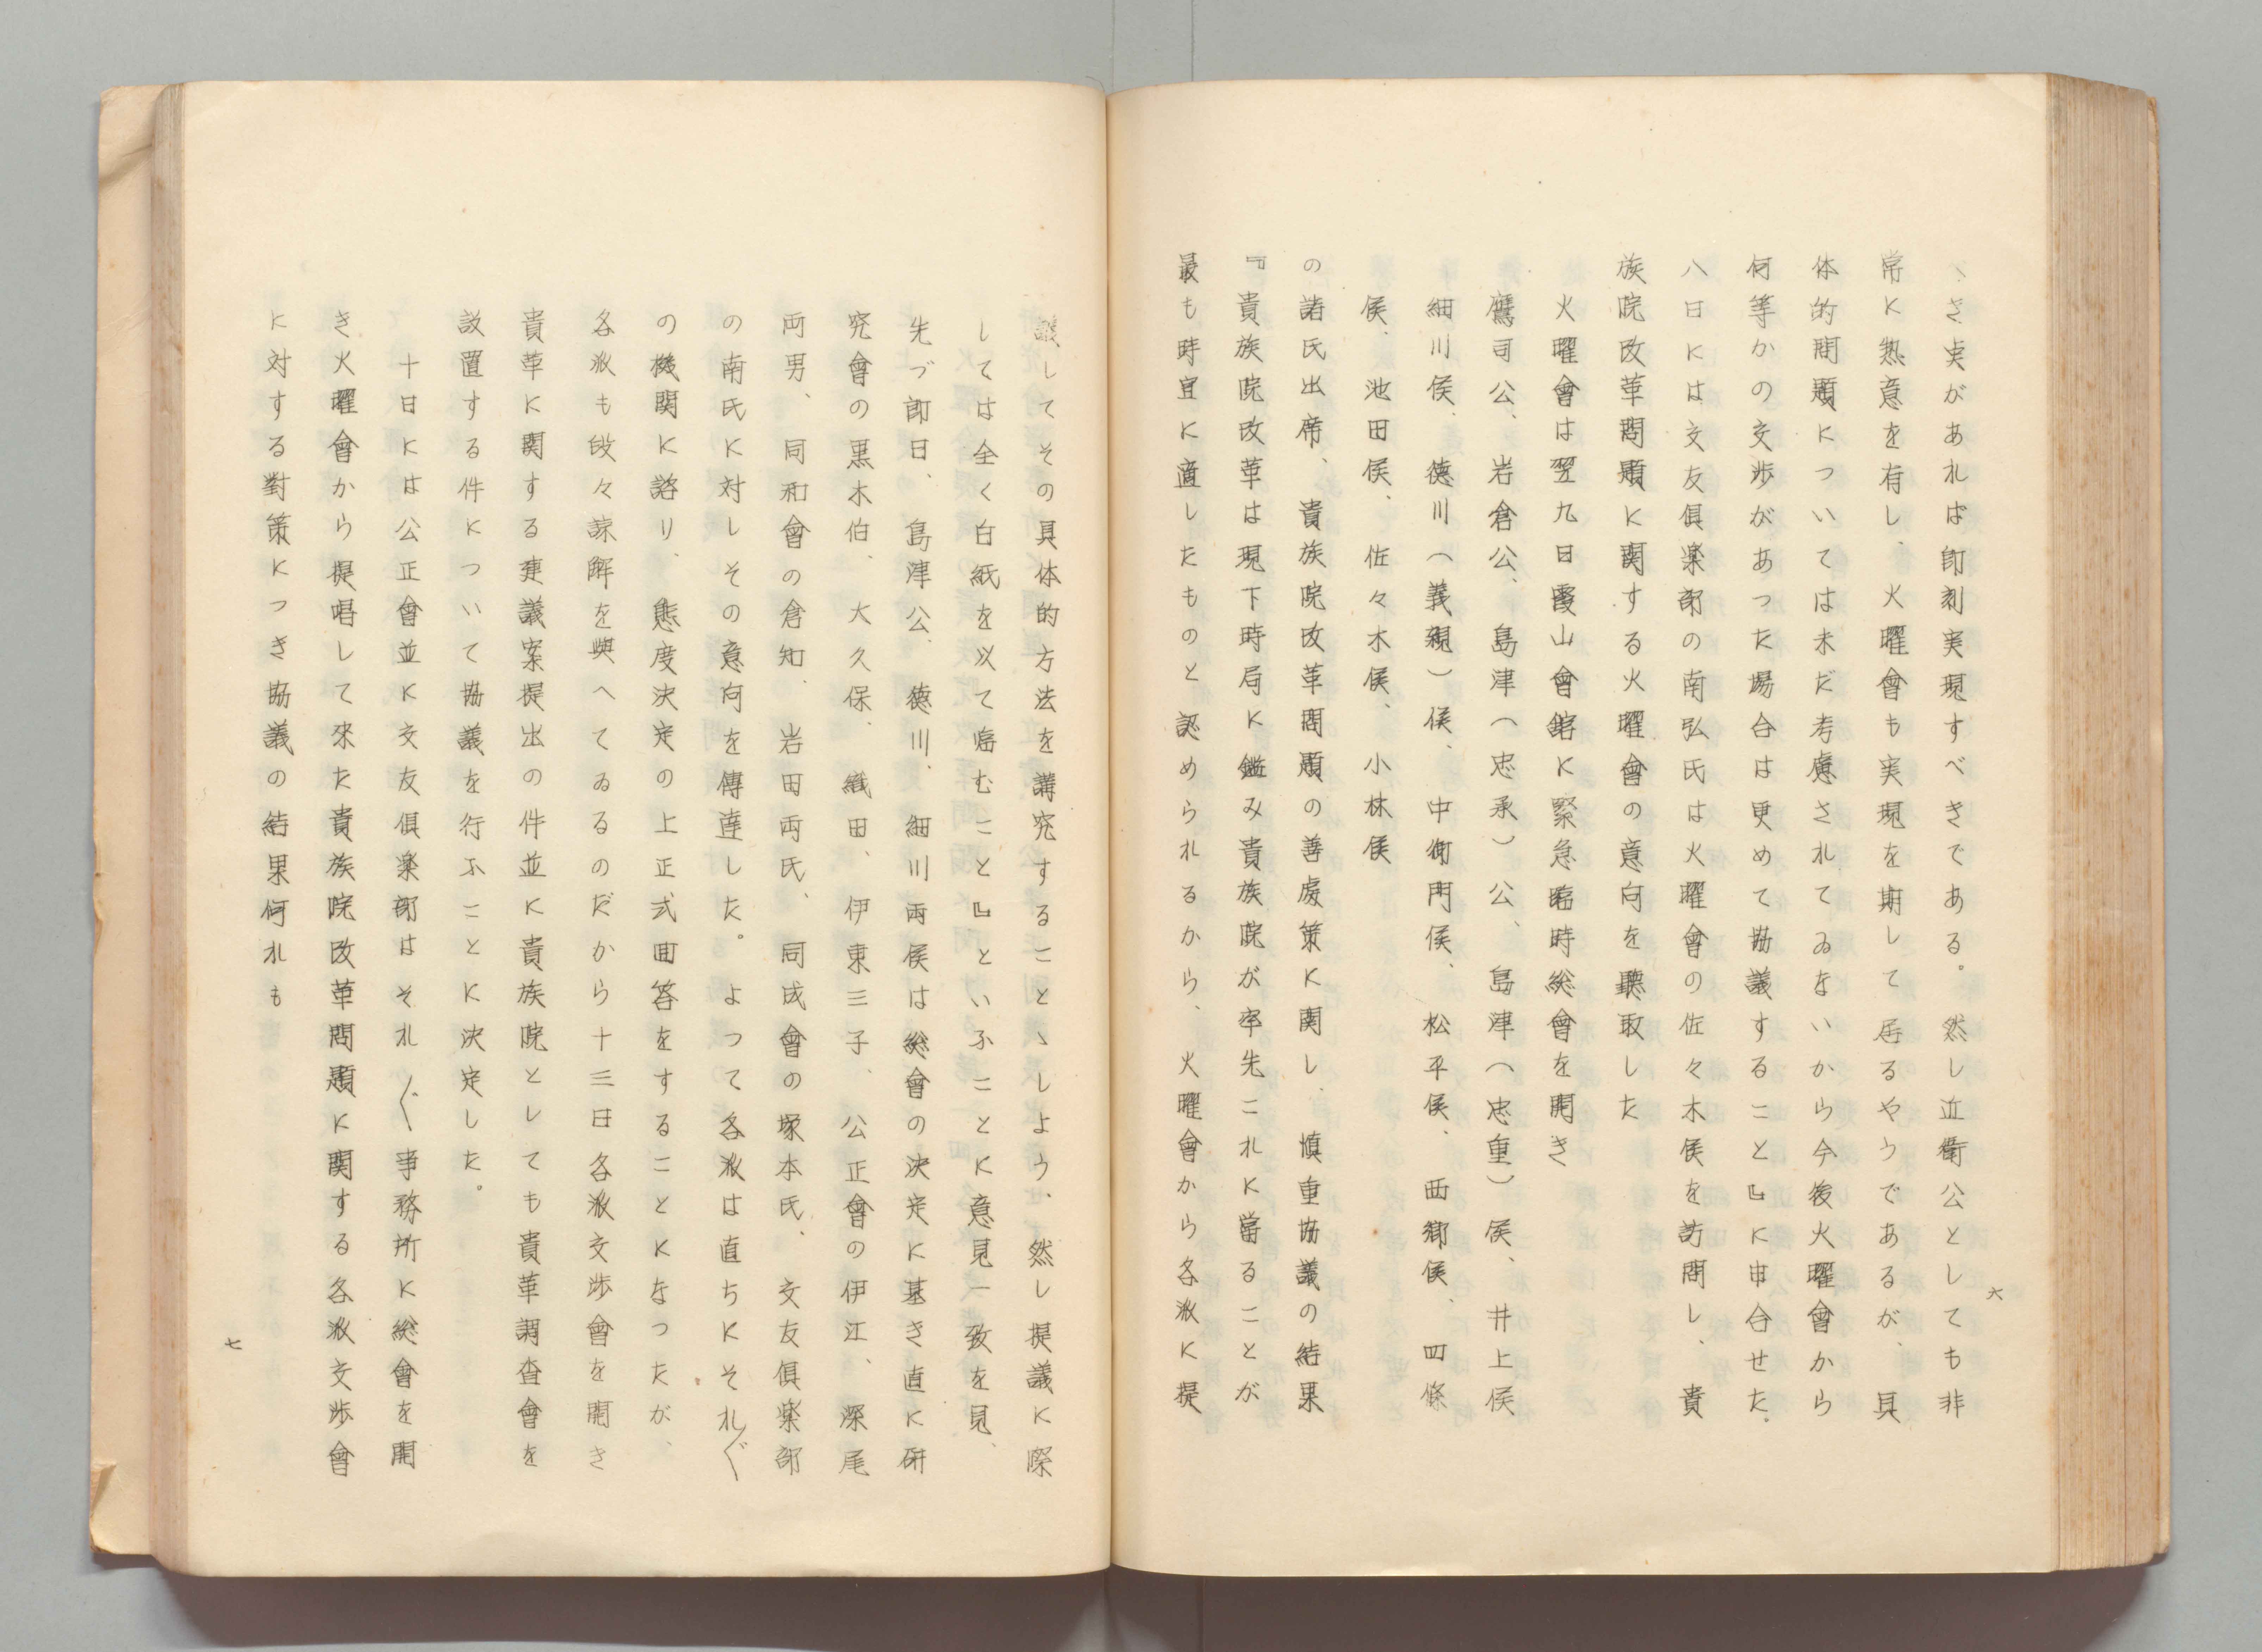 べき実があれば即刻実現すべきである。然し近衛公としても非
常に熱意を有し、火曜會も実現を期して居るやうであるが、具
体的問題については未だ考慮されてゐないから今後火曜會から
何等かの交渉があった場合は更めて協議すること』に申合せた。
八日には交友倶楽部の南弘氏は火曜會の佐々木侯を訪問し、貴
族院改革問題に関する火曜會の意向を聽取した
火曜會は翌九日霞山會館に緊急臨時総會を開き
鷹司公、岩倉公、島津(忠承)公、島津(忠重)侯、井上侯
細川侯、徳川(義親)侯、中御門侯、松平侯、西郷侯、四條
侯、池田侯、佐々木侯、小林侯
の諸氏出席、貴族院改革問題の善處策に関し、慎重協議の結果
『貴族院改革は現下時局に鑑み貴族院が率先これに當ることが
最も時宜に適したものと認められるから、火曜會から各派に提
六
議してその具体的方法を講究することゝしよう、然し提議に際
しては全く白紙を以て臨むこと』といふことに意見一致を見、
先づ即日、島津公、徳川、細川両侯は総會の決定に基き直に研
究會の黒木伯、大久保、織田、伊東三子、公正會の伊江、深尾
両男、同和會の倉知、岩田両氏、同成會の塚本氏、交友倶楽部
の南氏に対しその意向を傳達した。よって各派は直ちにそれ〲
の機関に諮り、態度決定の上正式回答をすることになったが、
各派も段々諒解を與へてゐるのだから十三日各派交渉會を開き
貴革に関する建議案提出の件並に貴族院としても貴革調査會を
設置する件について協議を行ふことに決定した。
十日には公正會並に交友倶楽部はそれ〲事務所に総會を開
き火曜會から提唱して來た貴族院改革問題に関する各派交渉會
に対する對策につき協議の結果何れも
七